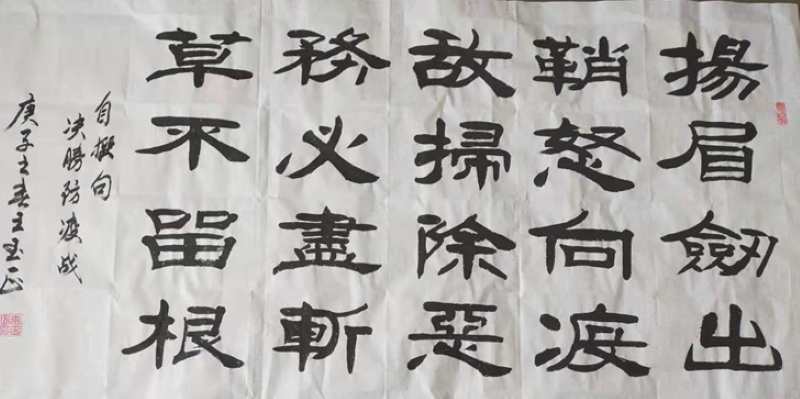 揚眉劔出
鞘怒向疫
敌掃除惡
務必盡斬
草不留根
自撰句
决勝防疫战
庚子之春王玉正